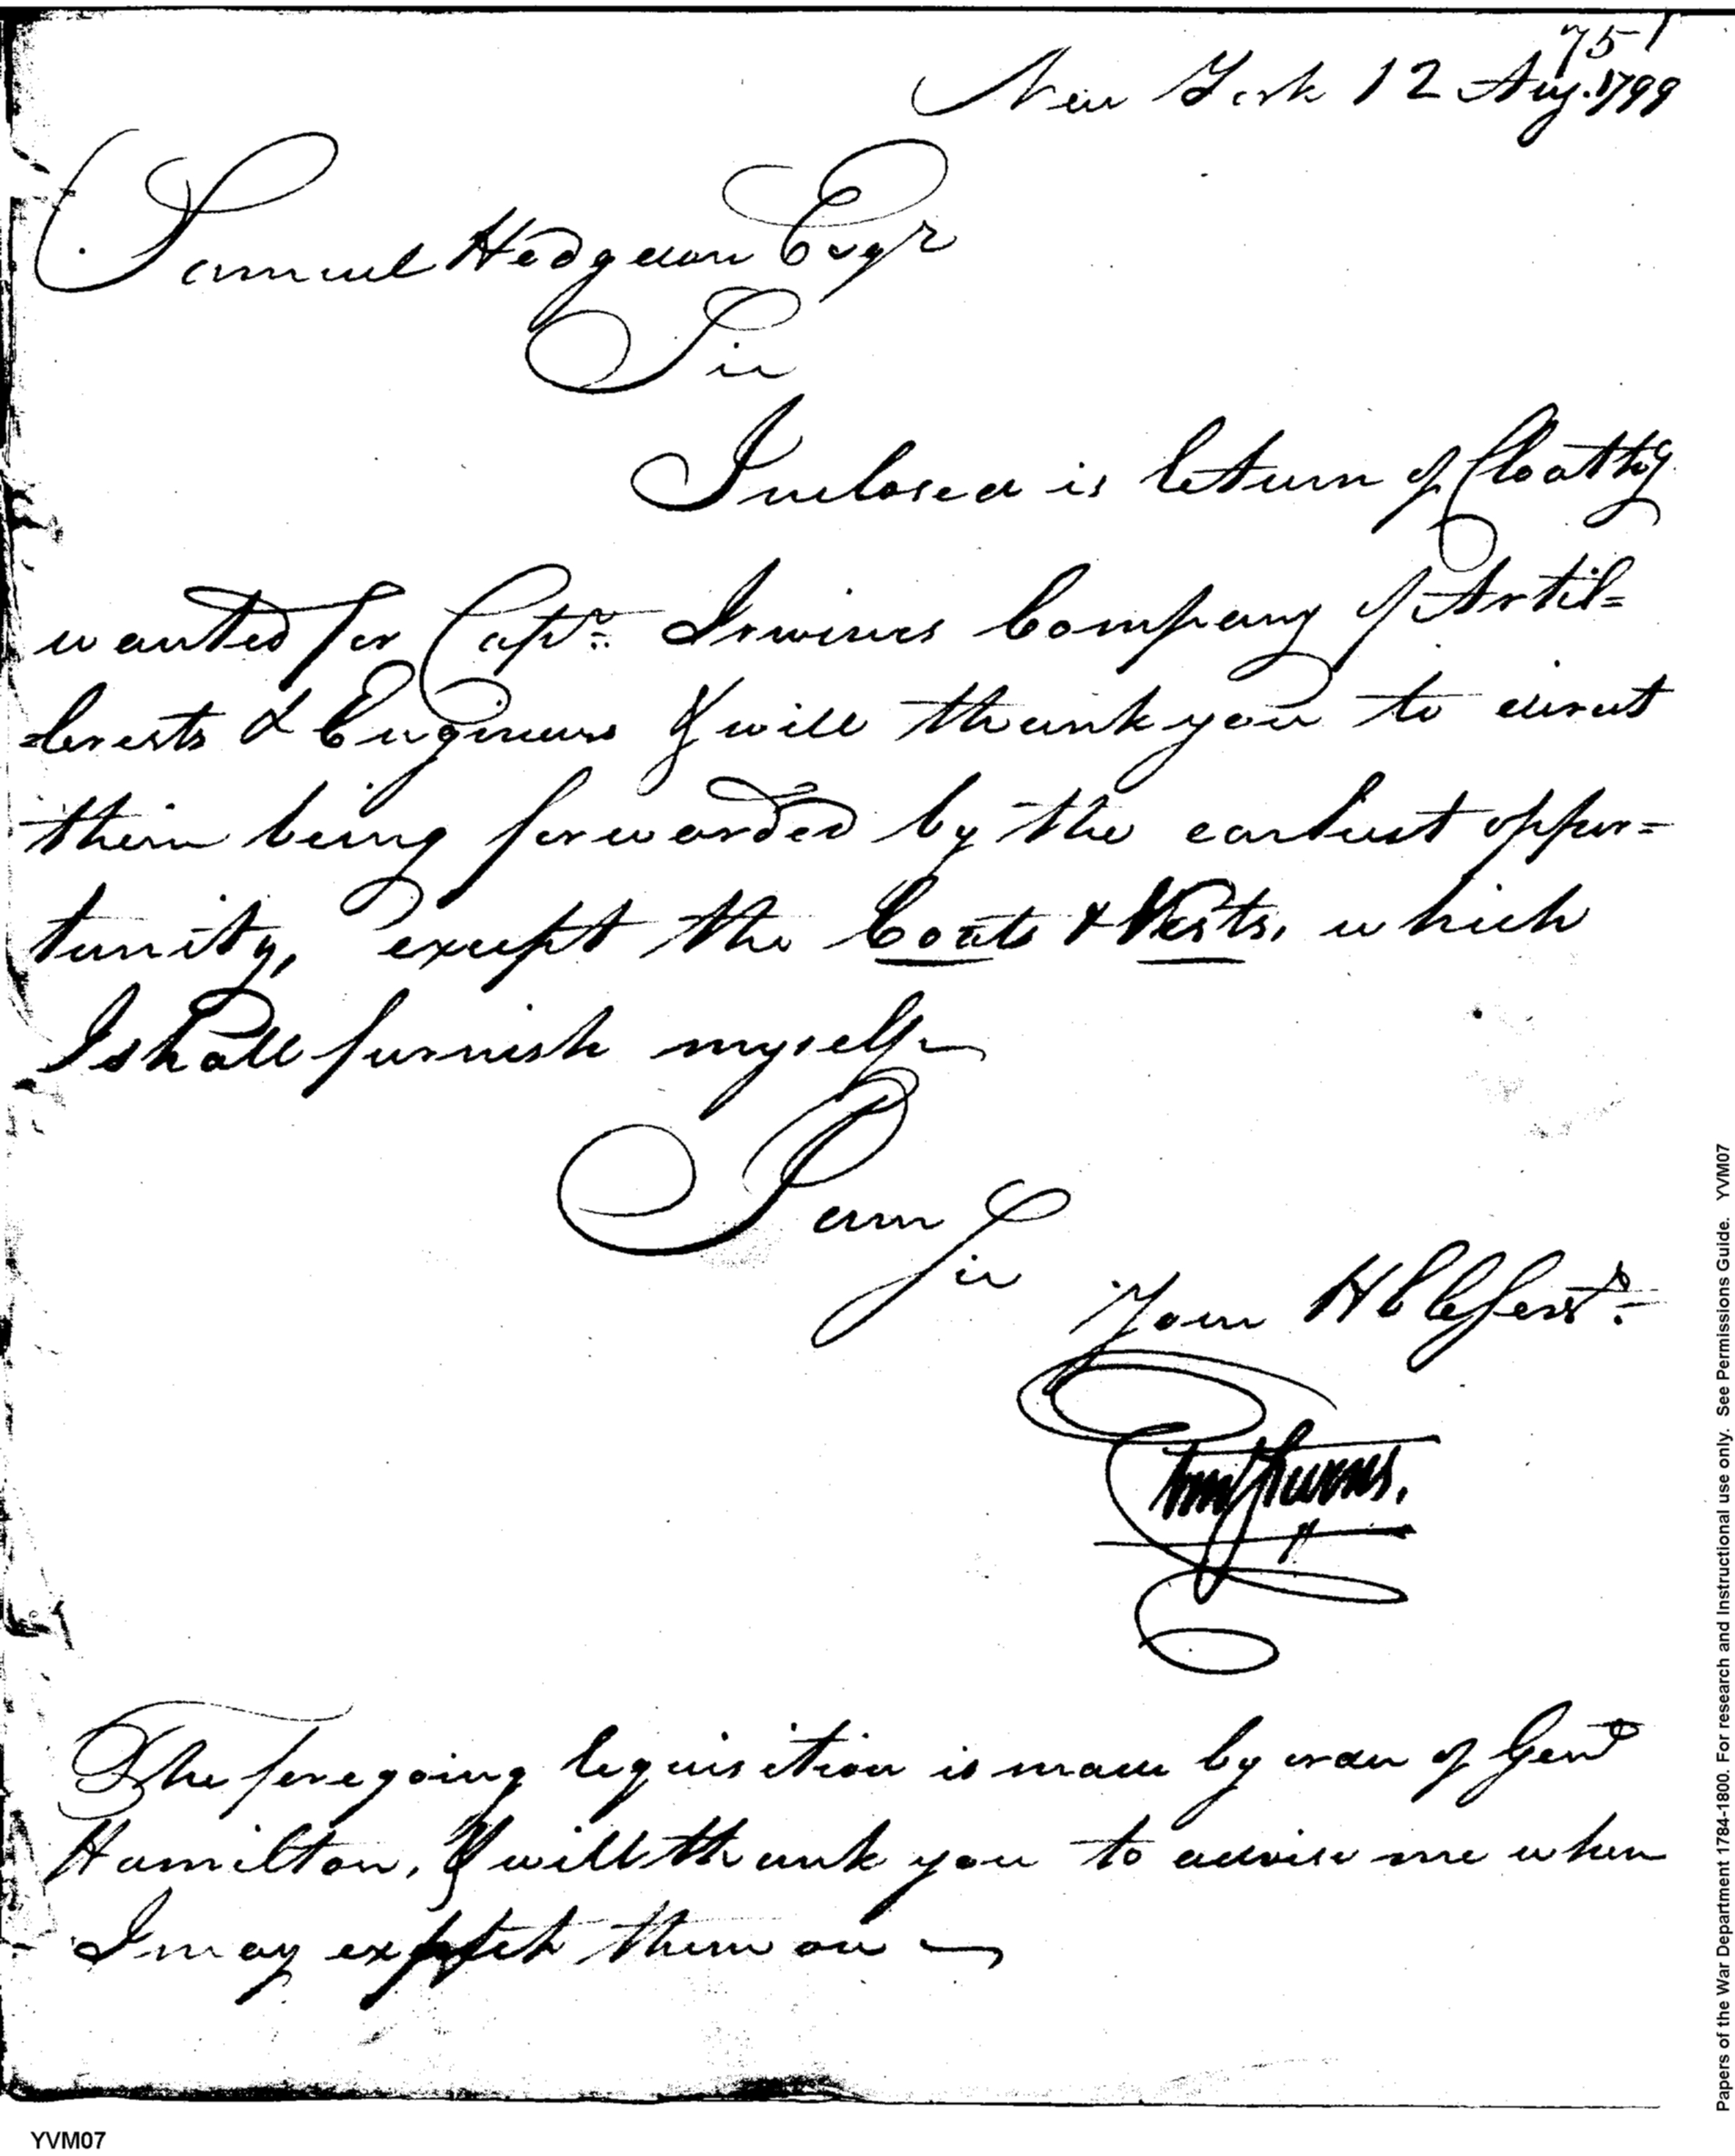 751
New York 12 Aug. 1799
Samuel Hodgdon Esqr
Sir
Inclosed is return of Cloathg
wanted for Capn. Irwines Company of Artil=
=lerests & Engineers & will thank you to direct
them being forwarded by the earliest oppor=
tunity, except the Coats & Vests, which
I shall furnish myself
I am
Sir
Your Hble Servt.
The foregoing requisition is made by order of Genl
Hamilton, & will thank you to advise me when
I may expect them on —
Papers of the War Department 1784-1800. For research and Instructional use only. See Permissions Guide. YVM07
YVM07